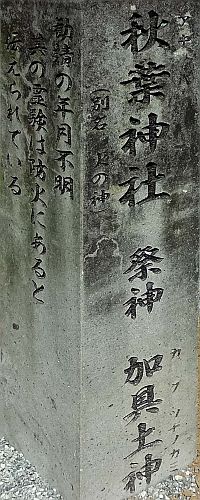 アキハ
秋葉神社 祭神 加具土神
カグツチノカミ
(別名 火の神)
勧請の年月不明
其の霊験は防火にあると
伝えられている